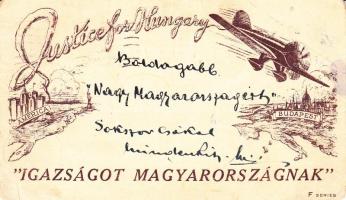 Justice for Hungary
Boldogabb
"Nagy Magyarországért"
Sokszor csókol
mindenkit
BUDAPEST
"IGAZSÁGOT MAGYARORSZÁGNAK"
F SERIES